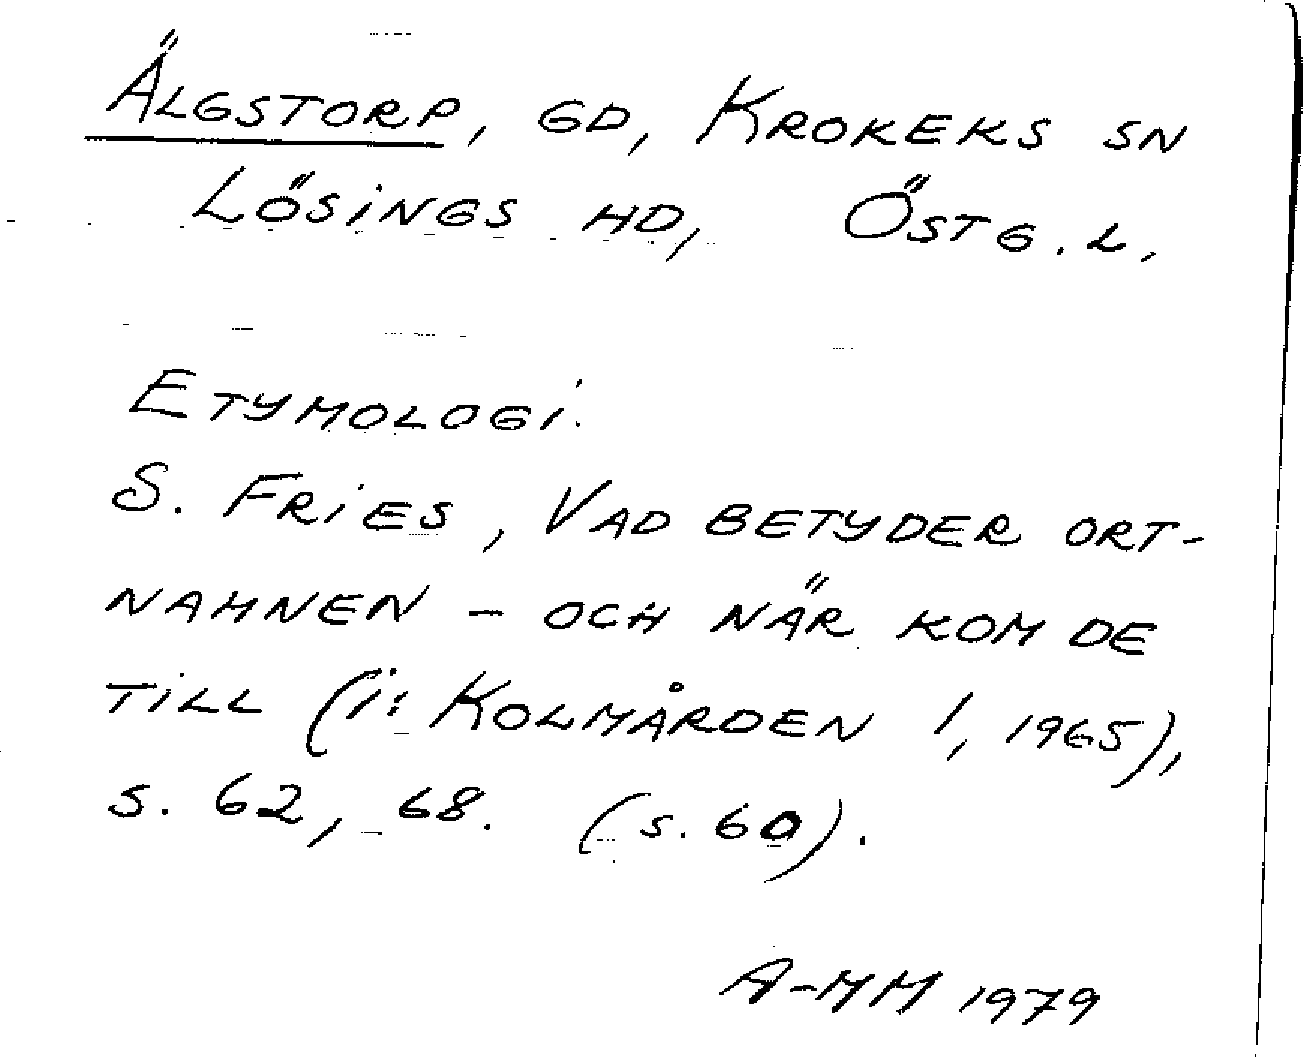 Älgstorp, gd, Krokeks sn
Lösings hd, Östg.l.
Etymologi.
S. Fries, Vad betyder ort-
namnen - och när kom de
till (i: Kolmården 1, 1965),
s. 62, 68. (s. 60).
A-MM 1979